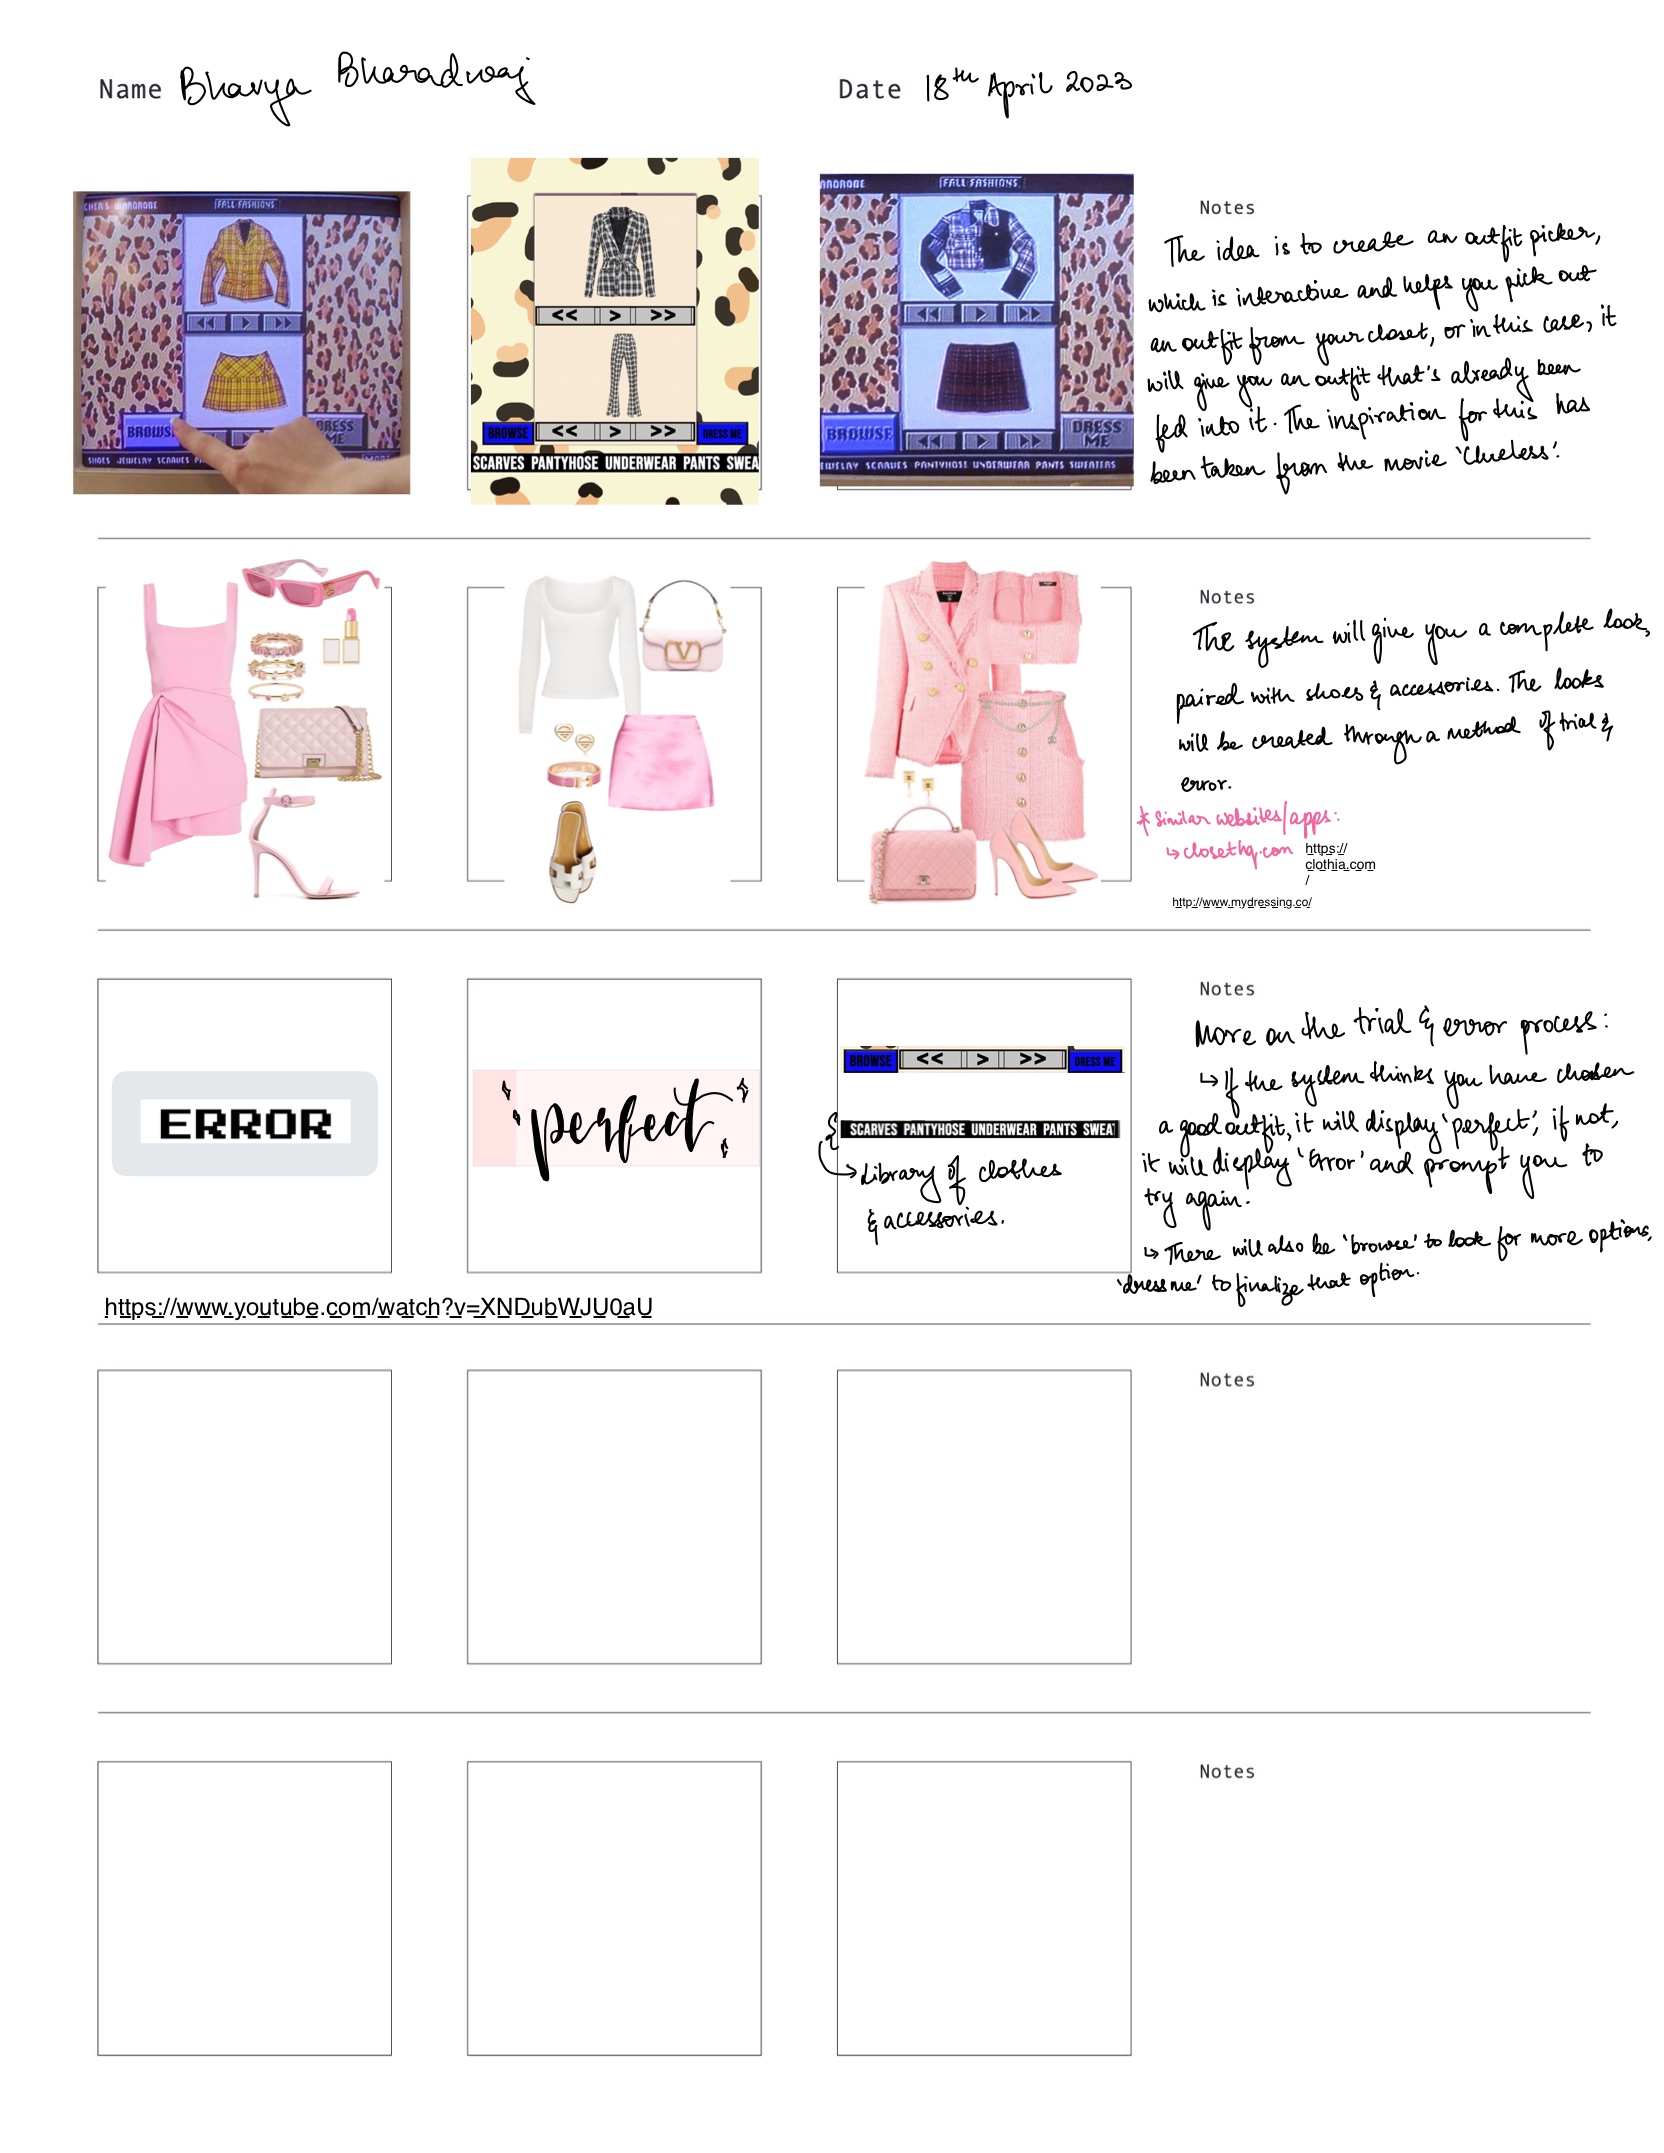 Name Bhavya Bharadwaj
Date 18th April 2023
CHER'S WARDROBE
FALL FASHIONS
BROWSE
DRESS ME
SHOES JEWELRY SCARVES
MORE
<< > >>
BROWSE << > >> DRESS ME
SCARVES PANTYHOSE UNDERWEAR PANTS SWEA
WARDROBE
FALL FASHIONS
BROWSE
DRESS ME
JEWELRY SCARVES PANTYHOSE UNDERWEAR PANTS SWEATERS
Notes
The idea is to create an outfit picker,
which is interactive and helps you pick out
an outfit from your closet, or in this case, it
will give you an outfit that's already been
fed into it. The inspiration for this has
been taken from the movie 'Clueless'.
Notes
The system will give you a complete look,
paired with shoes & accessories. The looks
will be created through a method of trial &
error.
* Similar websites/apps:
↳ closethq.com
https://
clothia.com
/
http://www.mydressing.co/
ERROR
perfect
BROWSE << > >> DRESS ME
&
SCARVES PANTYHOSE UNDERWEAR PANTS SWEAT
→ Library of clothes
& accessories.
Notes
More on the trial & error process:
↳ If the system thinks you have chosen
a good outfit, it will display 'perfect', if not,
it will display 'Error' and prompt you to
try again.
↳ There will also be 'browse' to look for more options,
'dress me' to finalize that option.
https://www.youtube.com/watch?v=XNDubWJU0aU
Notes
Notes